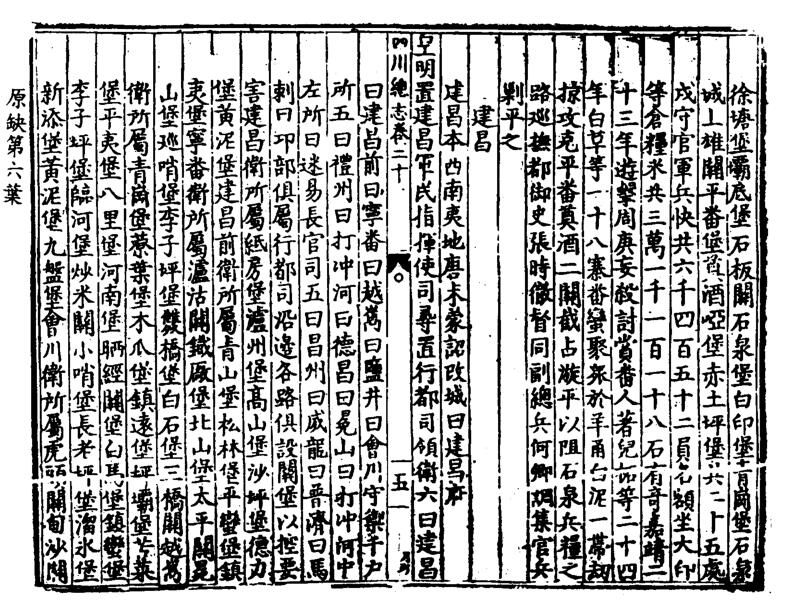 徐塘堡壩底堡石板關石泉堡白印堡青崗堡石泉
城上雄關平番堡貢酒啞堡赤土坪堡共二十五處
戍守官軍兵快共六千四百五十二員名額坐大印
等倉糧米共三萬一千一百一十八石有奇嘉靖二
十三年遊擊周庚妄殺討賞番人著兒等二十四
年白草等一十八寨番蠻聚眾於羊甬白泥一帶刼
掠攻克平番奠酒二關截占漩平以阻石泉兵糧之
路巡撫都御史張時徹督同副總兵何卿調集官兵
剿平之
建昌
建昌本西南夷地唐末蒙詔改城曰建昌府
皇明置建昌軍民指揮使司尋置行都司領衛六曰建昌
四川總志卷二十
五
曰建昌前曰寧番曰越嶲曰鹽井曰會川守禦千户
所五曰禮州曰打冲河曰德昌曰冕山曰打冲河中
左所曰迷易長官司五曰昌州曰威龍曰普濟曰馬
剌曰邛部俱屬行都司沿邊各路俱設關堡以控要
害建昌衛所屬紙房堡瀘州堡高山堡沙坪堡德力
堡黃泥堡建昌前衛所屬青山堡松林堡平蠻堡鎮
夷堡寧番衛所屬瀘沽關鐵厰堡北山堡太平關冕
山堡巡哨堡李子坪堡雙橋堡白石堡三橋關越嶲
衛所屬青崗堡蔡葉堡木瓜堡鎮遠堡坪壩堡苤葉
堡平夷堡八里堡河南堡晒經關堡白馬堡鎮蠻堡
李子坪堡臨河堡炒米關小哨堡長老坪堡溜水堡
新添堡黃泥堡九盤堡會川衛所屬虎頭關甸沙關
原缺第六葉